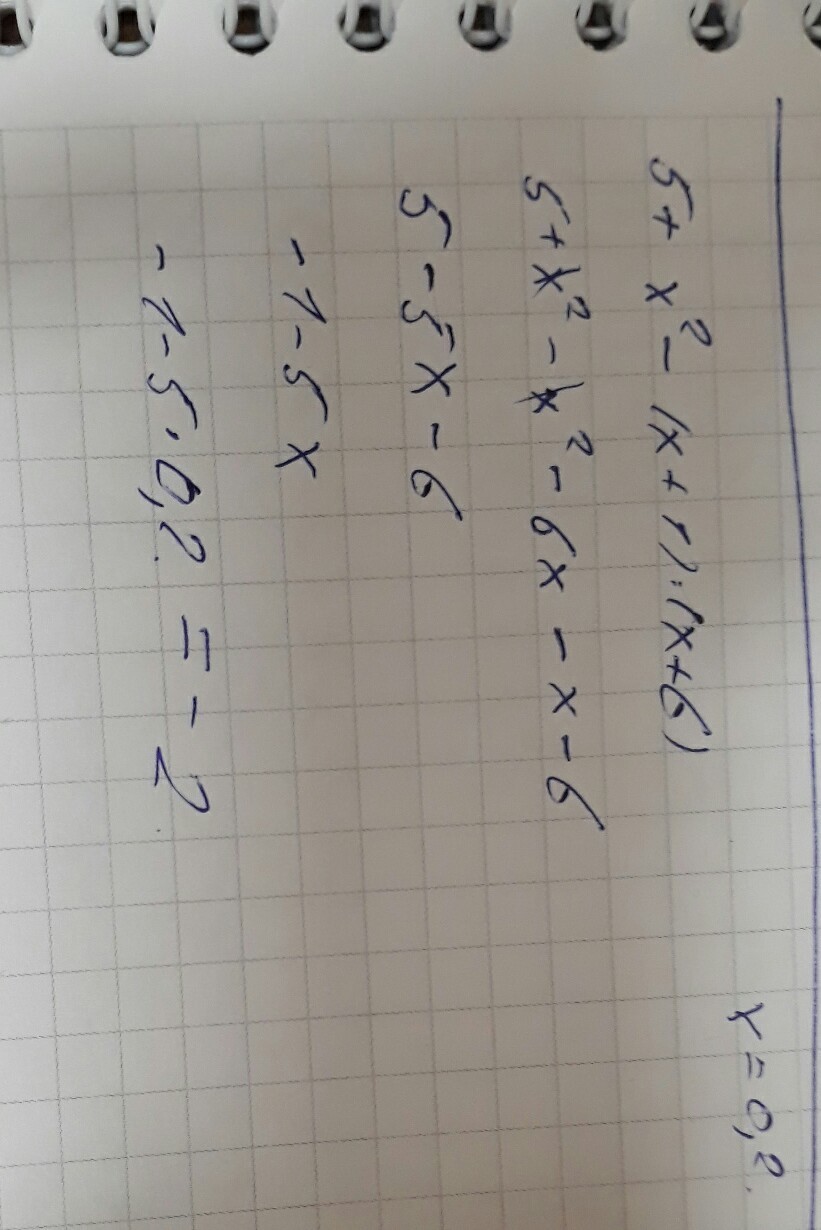 x = 0,2
5 + x² - (x + 1)·(x + 6)
5 + x² - x² - 6x - x - 6
5 - 5x - 6
- 1 - 5x
- 1 - 5 · 0,2 = - 2